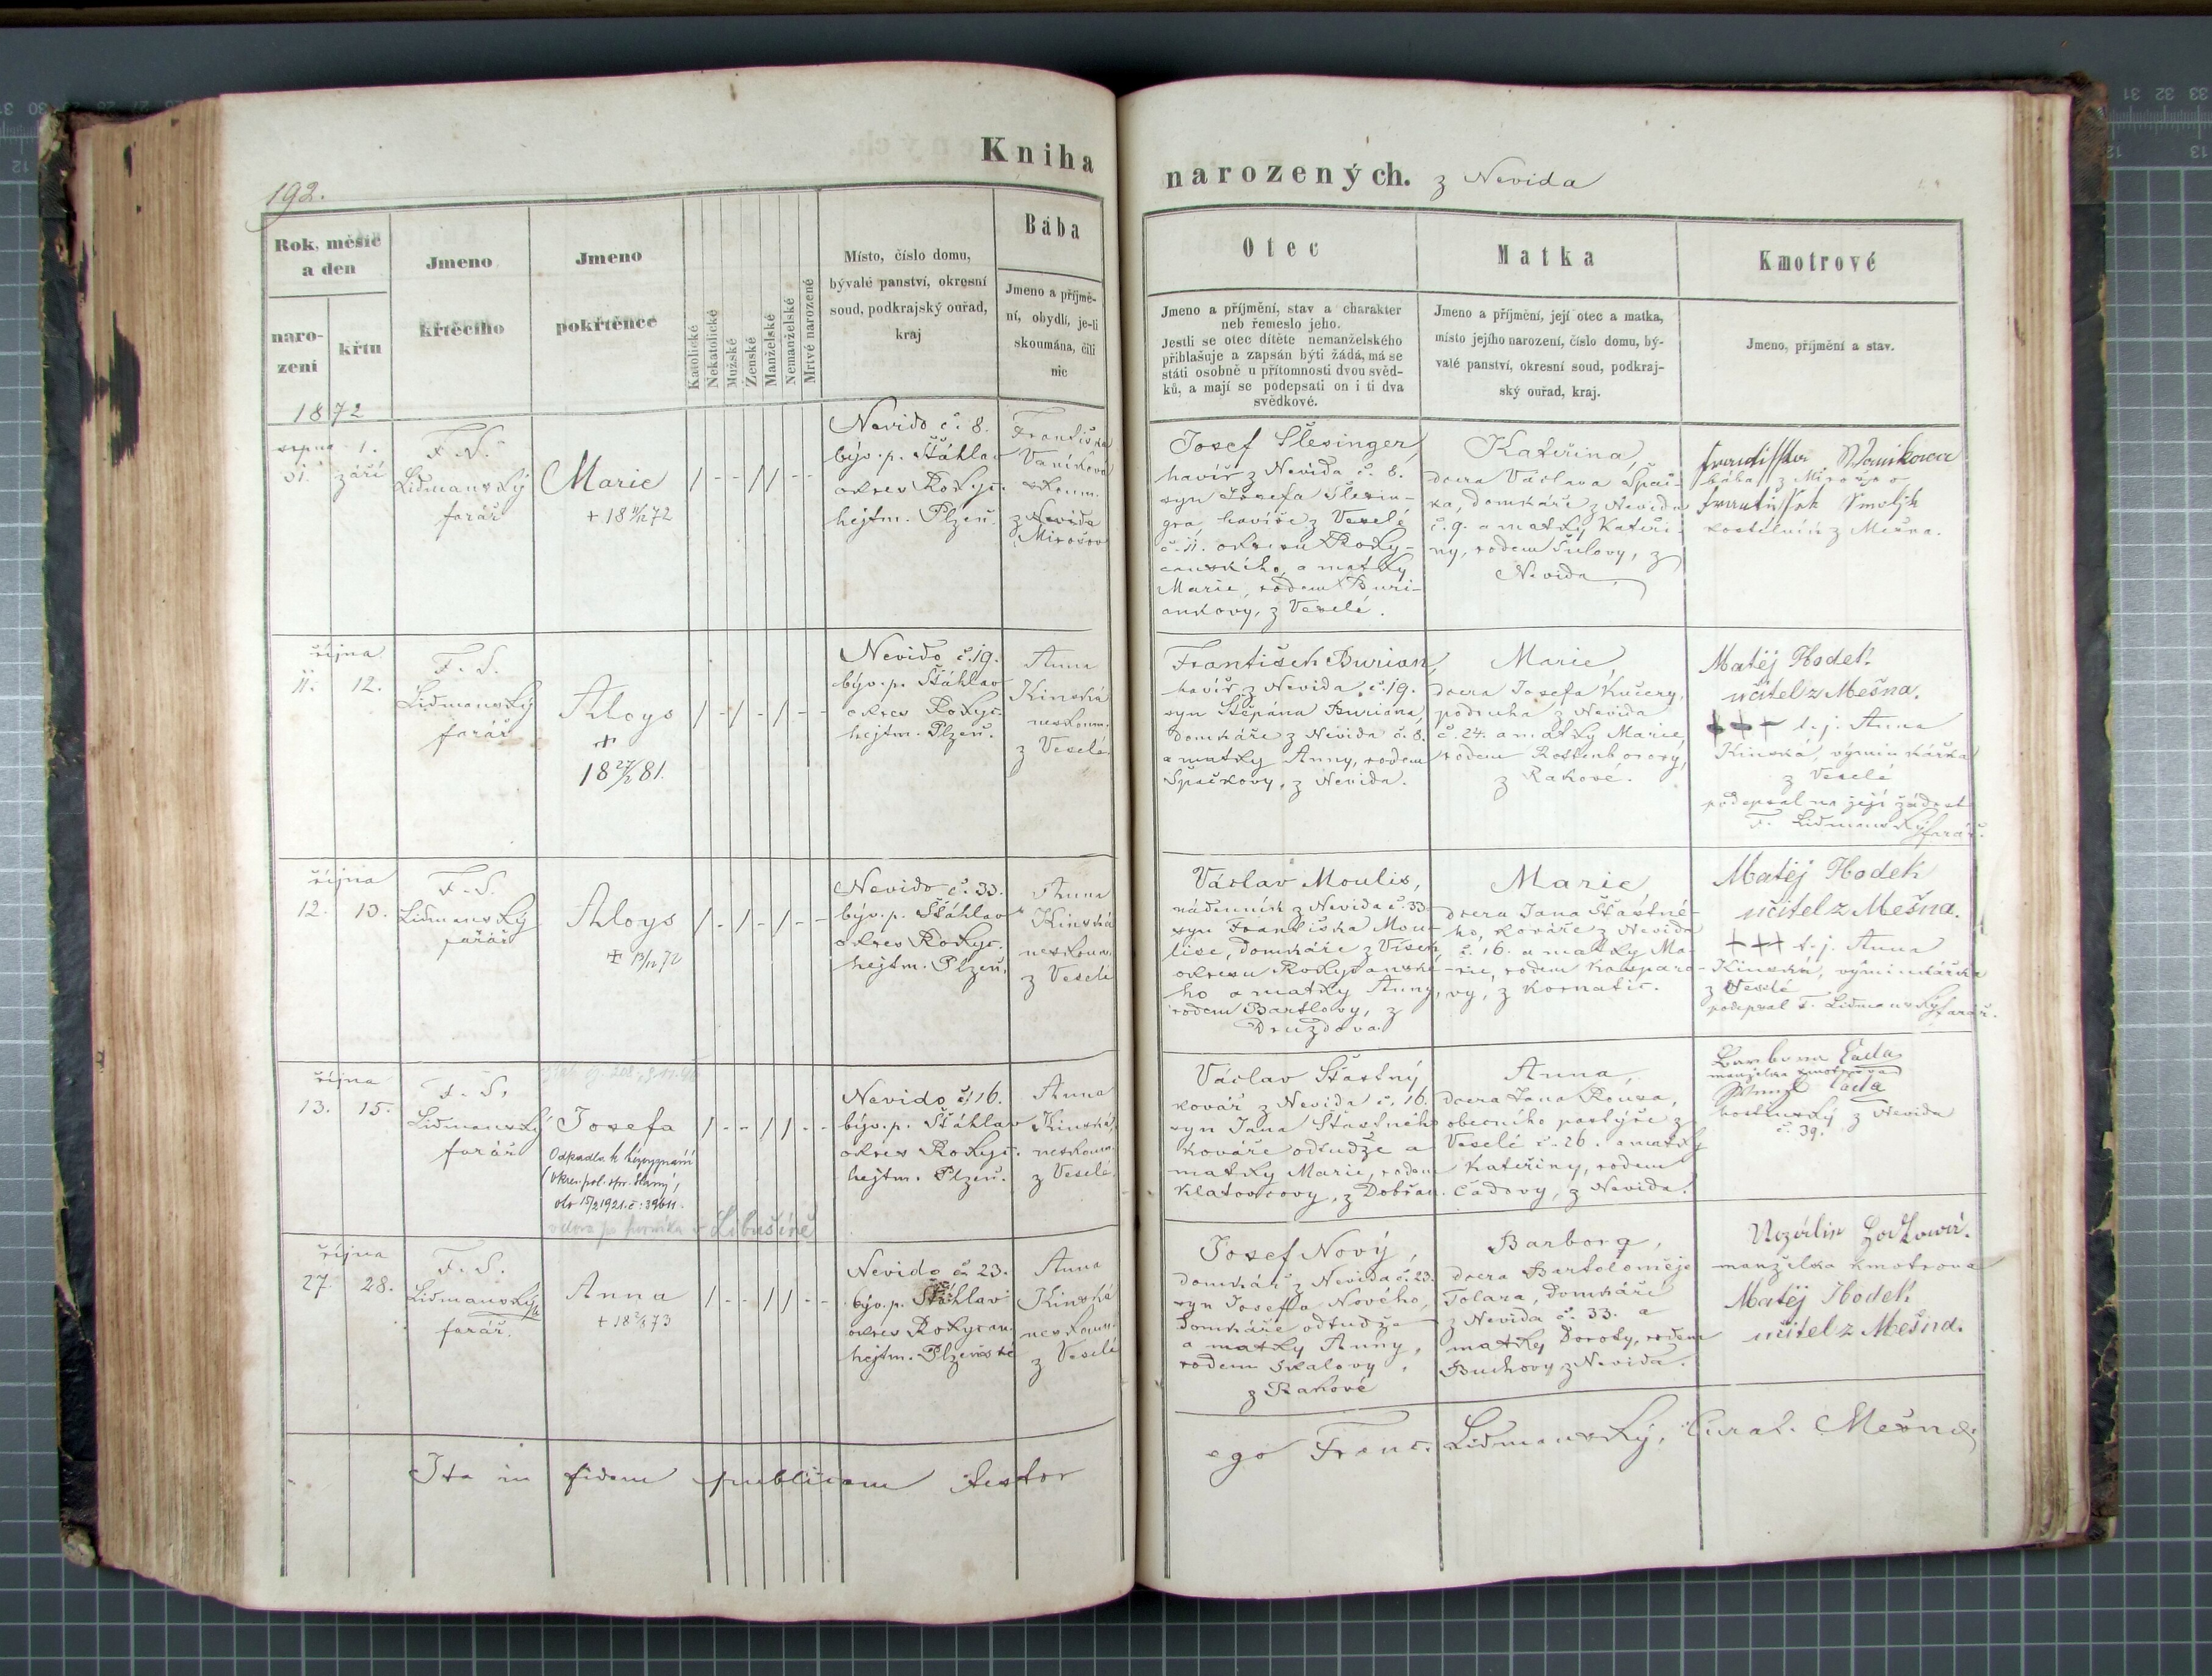 Kniha
narozených. z Nevida
192.
Rok, měsíc
a den
naro-
zení
křtu
Jmeno
křtěcího
Jmeno
pokřtěnce
Katolické
Nekatolické
Mužské
Ženské
Manželské
Nemanželské
Mrtvě narozené
Místo, číslo domu,
bývalé panství, okresní
soud, podkrajský ouřad,
kraj
Bába
Jmeno a příjmě-
ní, obydlí, je-li
skoumána, čili
nic
Otec
Jmeno a příjmění, stav a charakter
neb řemeslo jeho.
Jestli se otec dítěte nemanželského
přihlašuje a zapsán býti žádá, má se
státi osobně u přítomnosti dvou svěd-
ků, a mají se podepsati on i ti dva
svědkové.
Matka
Jmeno a příjmění, její otec a matka,
místo jejího narození, číslo domu, bý-
valé panství, okresní soud, podkraj-
ský ouřad, kraj.
Kmotrové
Jmeno, příjmění a stav.
1872
srpna 1.
31. září
F. S.
Lidmanský
farář
Marie
+ 18 72
Nevido č. 8.
býv. p. Šťáhlav
okres Rokyc.
hejtm. Plzeň.
Františka
Vaníkova
skoum.
z Nevida
Mirošov
Josef Šlesinger,
havíř z Nevida č. 8.
syn Josefa Šlesin-
gra, havíře z Veselé
č. 11. okresu Roky-
canského, a matky
Marie, rodem Buri-
ankovy, z Veselé.
Kateřina,
dcera Václava Špač-
ka, domkáře z Nevida
č. 9. a matky Kateři-
ny, rodem Šulovy, z
Nevida.
bába z Mirošova
František Smolik
kostelník z Mešna.
října
11. 12.
F. S.
Lidmanský
farář
Aloys
+
18 27/2 81.
Nevido č. 19.
býv. p. Šťáhlav
okres Rokyc.
hejtm. Plzeň.
Anna
Kinská
neskoum.
z Veselé
František Burian,
havíř z Nevida, č. 19.
syn Štěpána Buriana,
domkáře z Nevida č. 8.
a matky Anny, rodem
Špačkovy, z Nevida.
Marie,
dcera Josefa Kučery,
podruha z Nevida
č. 24. a matky Marie,
rodem
z Rakové.
Matěj Hodek
učitel z Mešna.
+++ t. j. Anna
Kinská, výminkářka
z Veselé
podepsal na její žádost
F. Lidmanský farář.
října
12. 13.
F. S.
Lidmanský
farář
Aloys
+ 13/11 72
Nevido č. 33.
býv. p. Šťáhlav
okres Rokyc.
hejtm. Plzeň.
Anna
Kinská
neskoum.
z Veselé
Václav Moulis,
nádenník z Nevida č. 33
syn Františka Mou-
lise, domkáře z Vísek,
okresu Rokycanské-
ho a matky Anny,
rodem Bartlovy, z
Druzdova.
Marie
dcera Jana Šťastné-
ho, kováře z Nevida
č. 16. a matky Ma-
rie, rodem Kasparo-
vy, z Kornatic.
Matěj Hodek
učitel z Mešna.
+++ t. j. Anna
Kinská, výminkářka
z Veselé
podepsal F. Lidmanský farář.
října
13. 15.
F. S.
Lidmanský
farář
Josefa
Odpadla k bezvyznání
(okres. pol. spr. Slaný,
dto 15/2 1921. č: 39611.
v Libušíně
Nevido č. 16.
býv. p. Šťáhlav
okres Rokyc.
hejtm. Plzeň.
Anna
Kinská,
neskoum.
z Veselé
Václav Šťastný
kovář z Nevida č. 16.
syn Jana Šťastného
kováře odtudže a
matky Marie, rodem
Klatovcovy, z Dobřan.
Anna,
dcera Jana Rousa,
obecního pastýře z
Veselé č. 26. a matky
Kateřiny, rodem
Čadovy, z Nevida.
Barbora Čada
manželka kmotrova
Čada
z Nevida
č. 39.
října
27. 28.
F. S.
Lidmanský
farář.
Anna
+ 18 73
Nevido č. 23.
býv. p. Šťáhlav
okres Rokycan.
hejtm. Plzeňské
Anna
Kinská
neskoum.
z Veselé
Josef Nový,
domkář z Nevida č. 23.
syn Josefa Nového,
domkáře odtudže
a matky Anny,
rodem Skalovy,
z Rakové
Barbora,
dcera Bartoloměje
Tolara, domkáře
z Nevida č. 33. a
matky Doroty, rodem
Buchovy z Nevida.
manželka kmotrova
Matěj Hodek
učitel z Mešna.
Ita in fidem publicam testor
ego Franc. Lidmanský, Curat. Mešn.